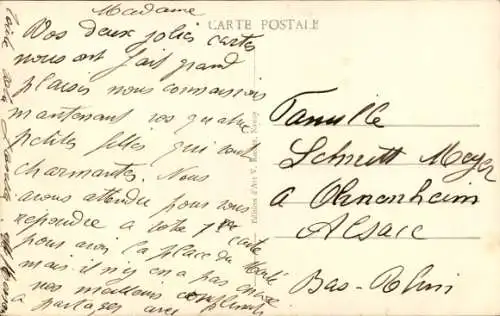 Madame
CARTE POSTALE
Vos deux jolies cartes
nous ont fait grand
plaisir nous connaissons
maintenant vos quatre
petites filles qui sont
charmantes. Nous
avons attendu pour vous
répondre à votre 1ère carte
pour avoir la place du Marché
mais il n'y en a pas encore
nos meilleurs compliments
à partager avec
Famille
Schmitt Meyer
à Ohnenheim
Alsace
Bas-Rhin
Editions d'Art V.
Nancy